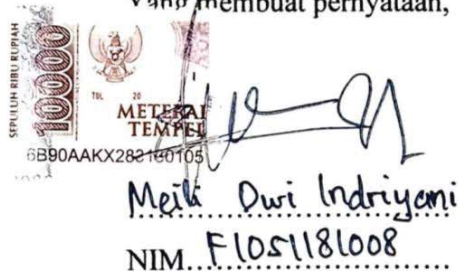 Yang membuat pernyataan,
SEPULUH RIBU RUPIAH
10000
TGL. 20
METERAI
TEMPEL
6B90AAKX282160105
Meili Dwi Indriyani
NIM. F1051181008